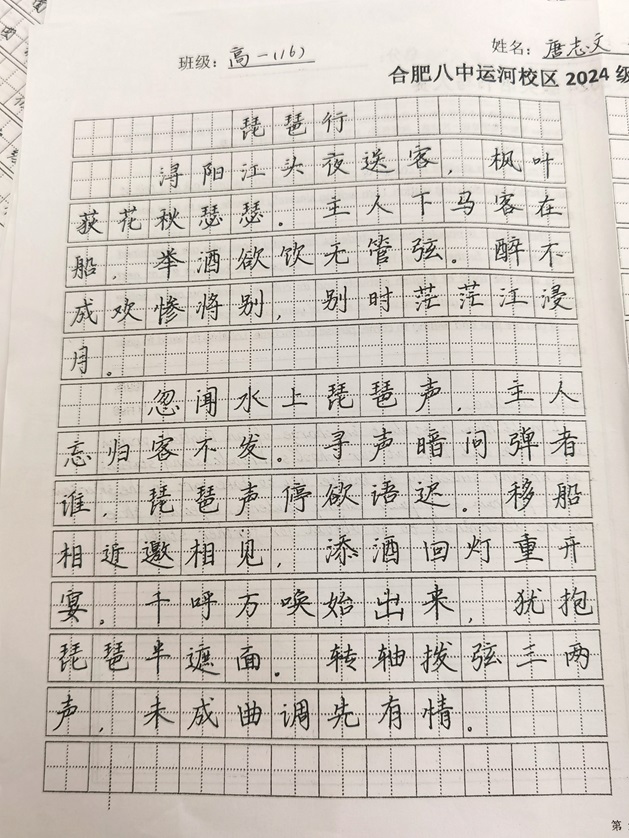 班级：高一(16) 姓名：唐志文
合肥八中运河校区2024级
琵琶行
浔阳江头夜送客，枫叶
荻花秋瑟瑟。主人下马客在
船，举酒欲饮无管弦。醉不
成欢惨将别，别时茫茫江浸
月。
忽闻水上琵琶声，主人
忘归客不发。寻声暗问弹者
谁，琵琶声停欲语迟。移船
相近邀相见，添酒回灯重开
宴。千呼万唤始出来，犹抱
琵琶半遮面。转轴拨弦三两
声，未成曲调先有情。
第